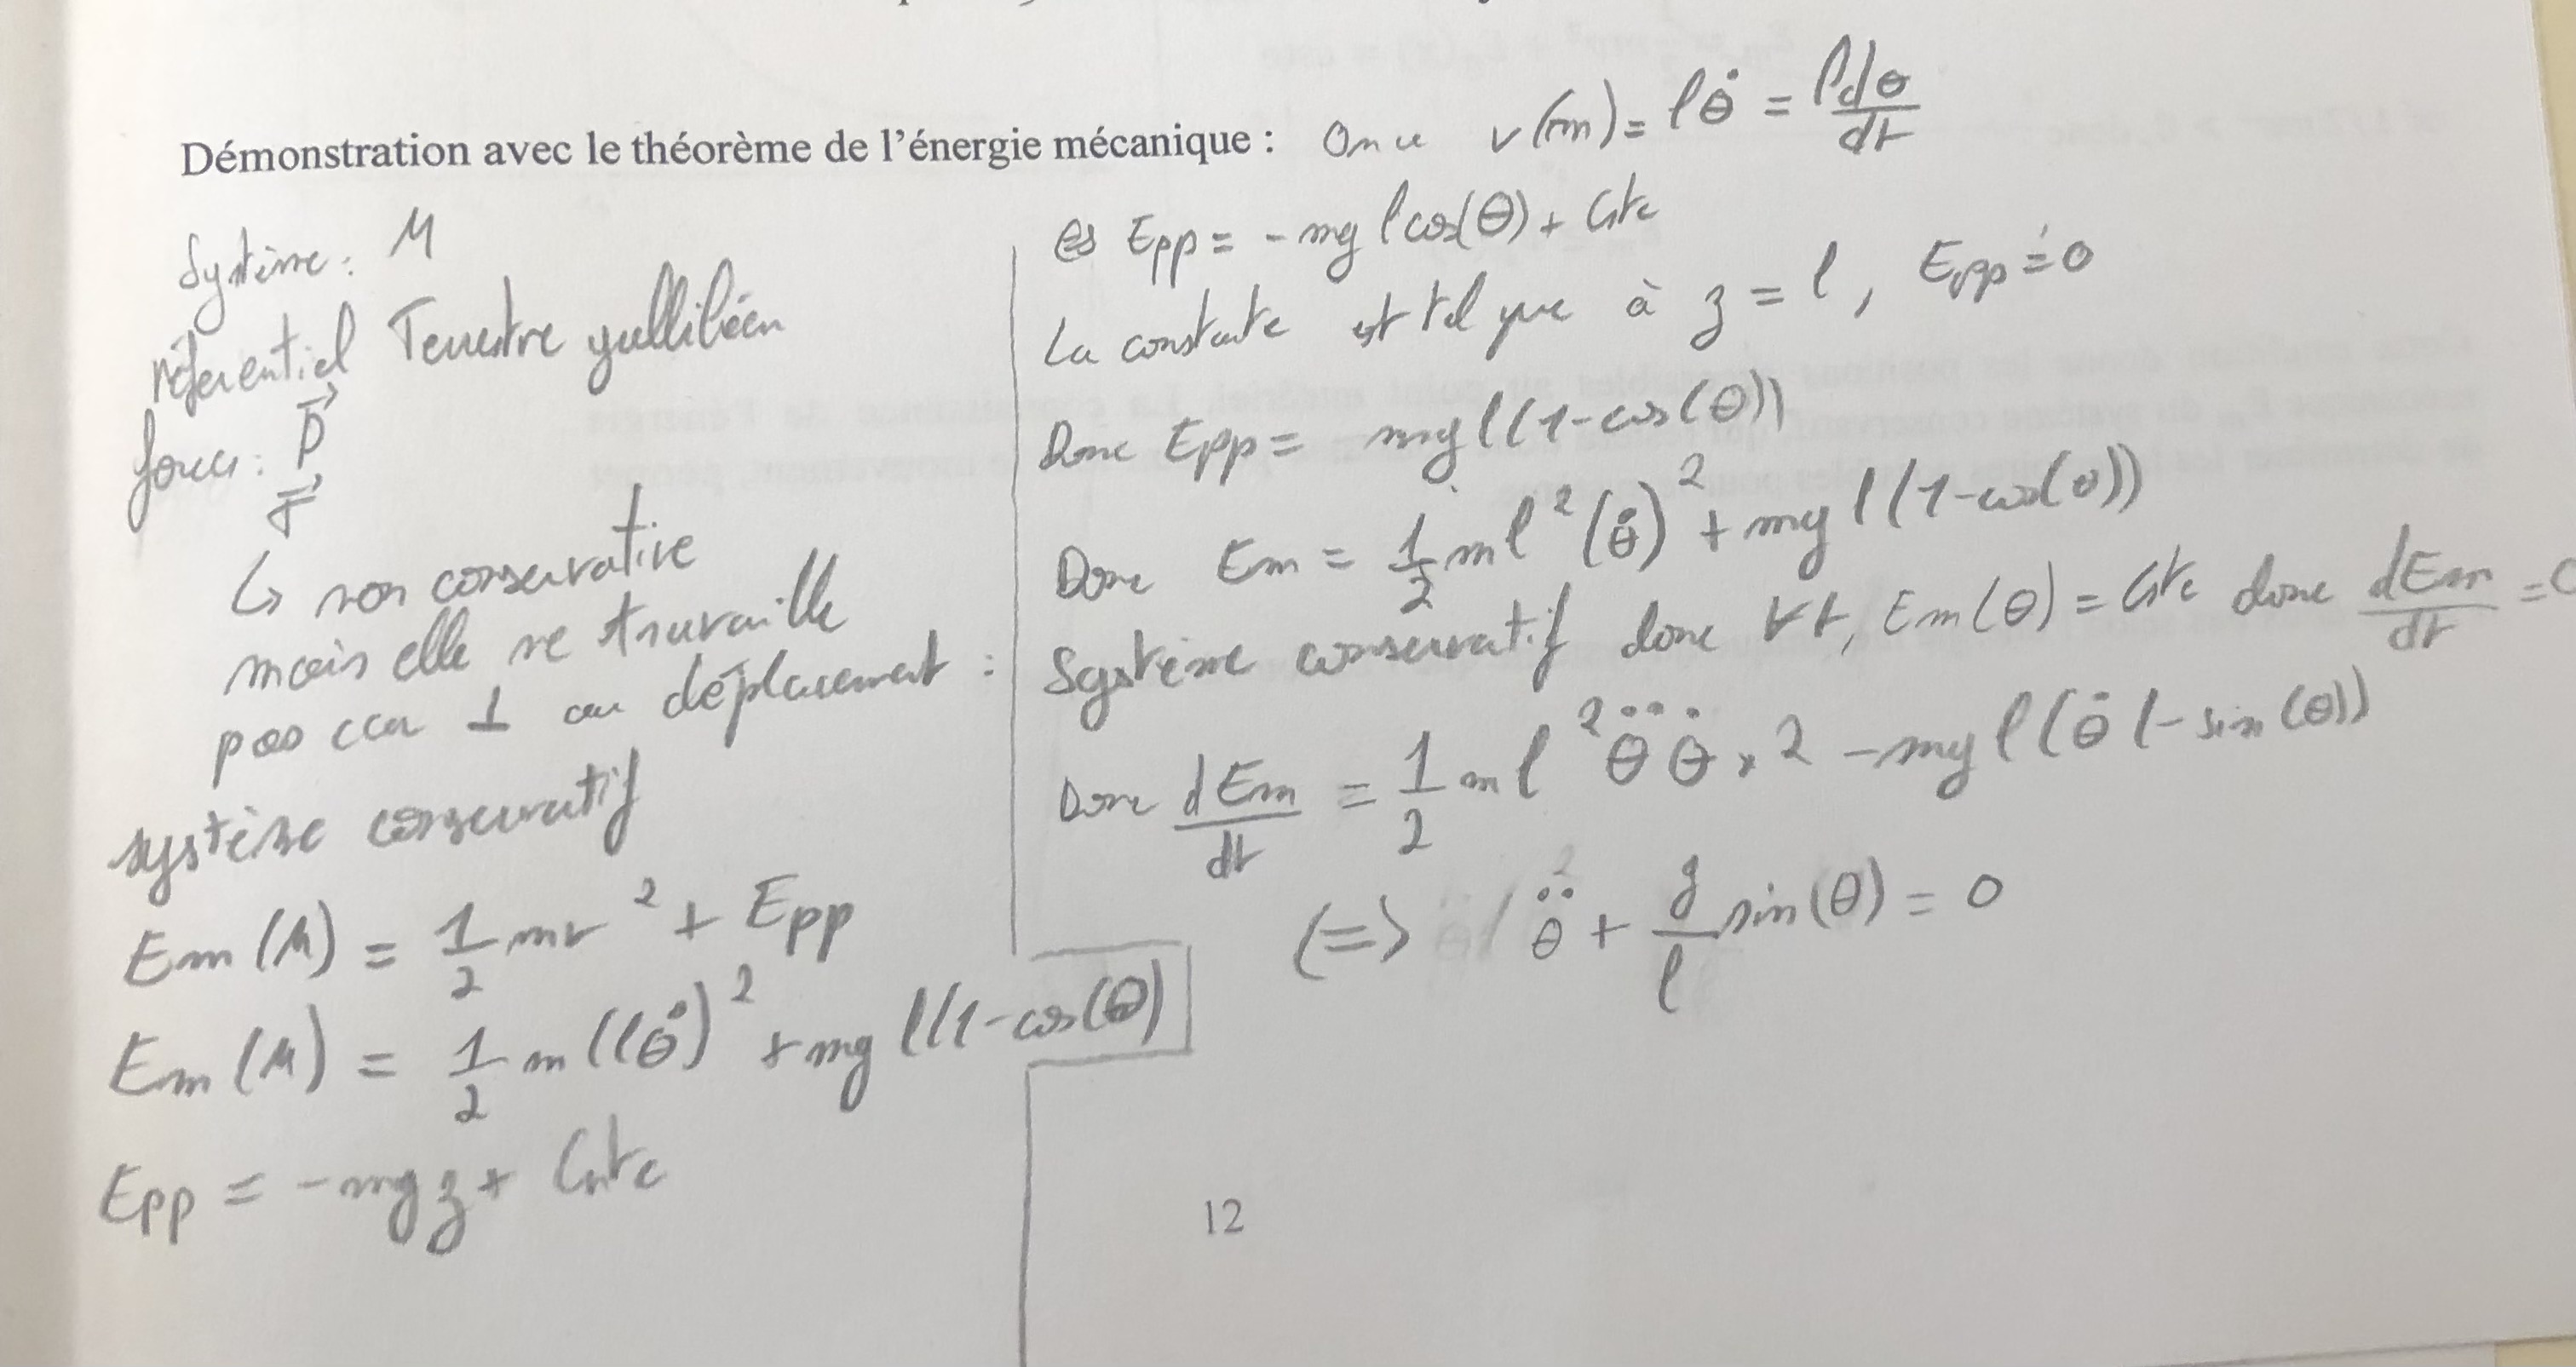 Démonstration avec le théorème de l'énergie mécanique : On a v(m) = lθ̇ = ldθ/dt
Système : M
référentiel Terrestre galliléen
forces : P⃗
T⃗
↳ non conservative
mais elle ne travaille
pas car ⊥ au déplacement :
système conservatif
Em (M) = 1/2 mv² + Epp
Em (M) = 1/2 m (lθ̇)² + mg l(1-cos(θ)
Epp = -mgz + Cste
Epp = - mg l cos(θ) + Cste
La constante est tel que à z = l, Epp = 0
Donc Epp = mg l(1-cos(θ))
Donc Em = 1/2 ml²(θ̇)² + mg l(1-cos(θ))
Système conservatif donc ∀t, Em(θ) = Cste donc dEm/dt = 0
Donc dEm/dt = 1/2 m l² θ̈ θ̇ × 2 - mg l(θ̇(-sin(θ))
(=> θ̈ + g/l sin(θ) = 0
12